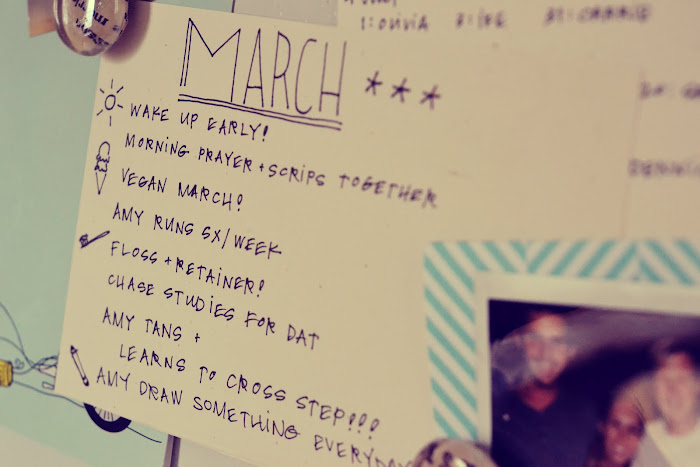 1: OLIVIA
MARCH ***
WAKE UP EARLY!
MORNING PRAYER + SCRIPS TOGETHER
VEGAN MARCH!
AMY RUNS 5X/WEEK
FLOSS + RETAINER!
CHASE STUDIES FOR DAT
AMY TANS +
LEARNS TO CROSS STEP!!!
AMY DRAW SOMETHING EVERYDAY